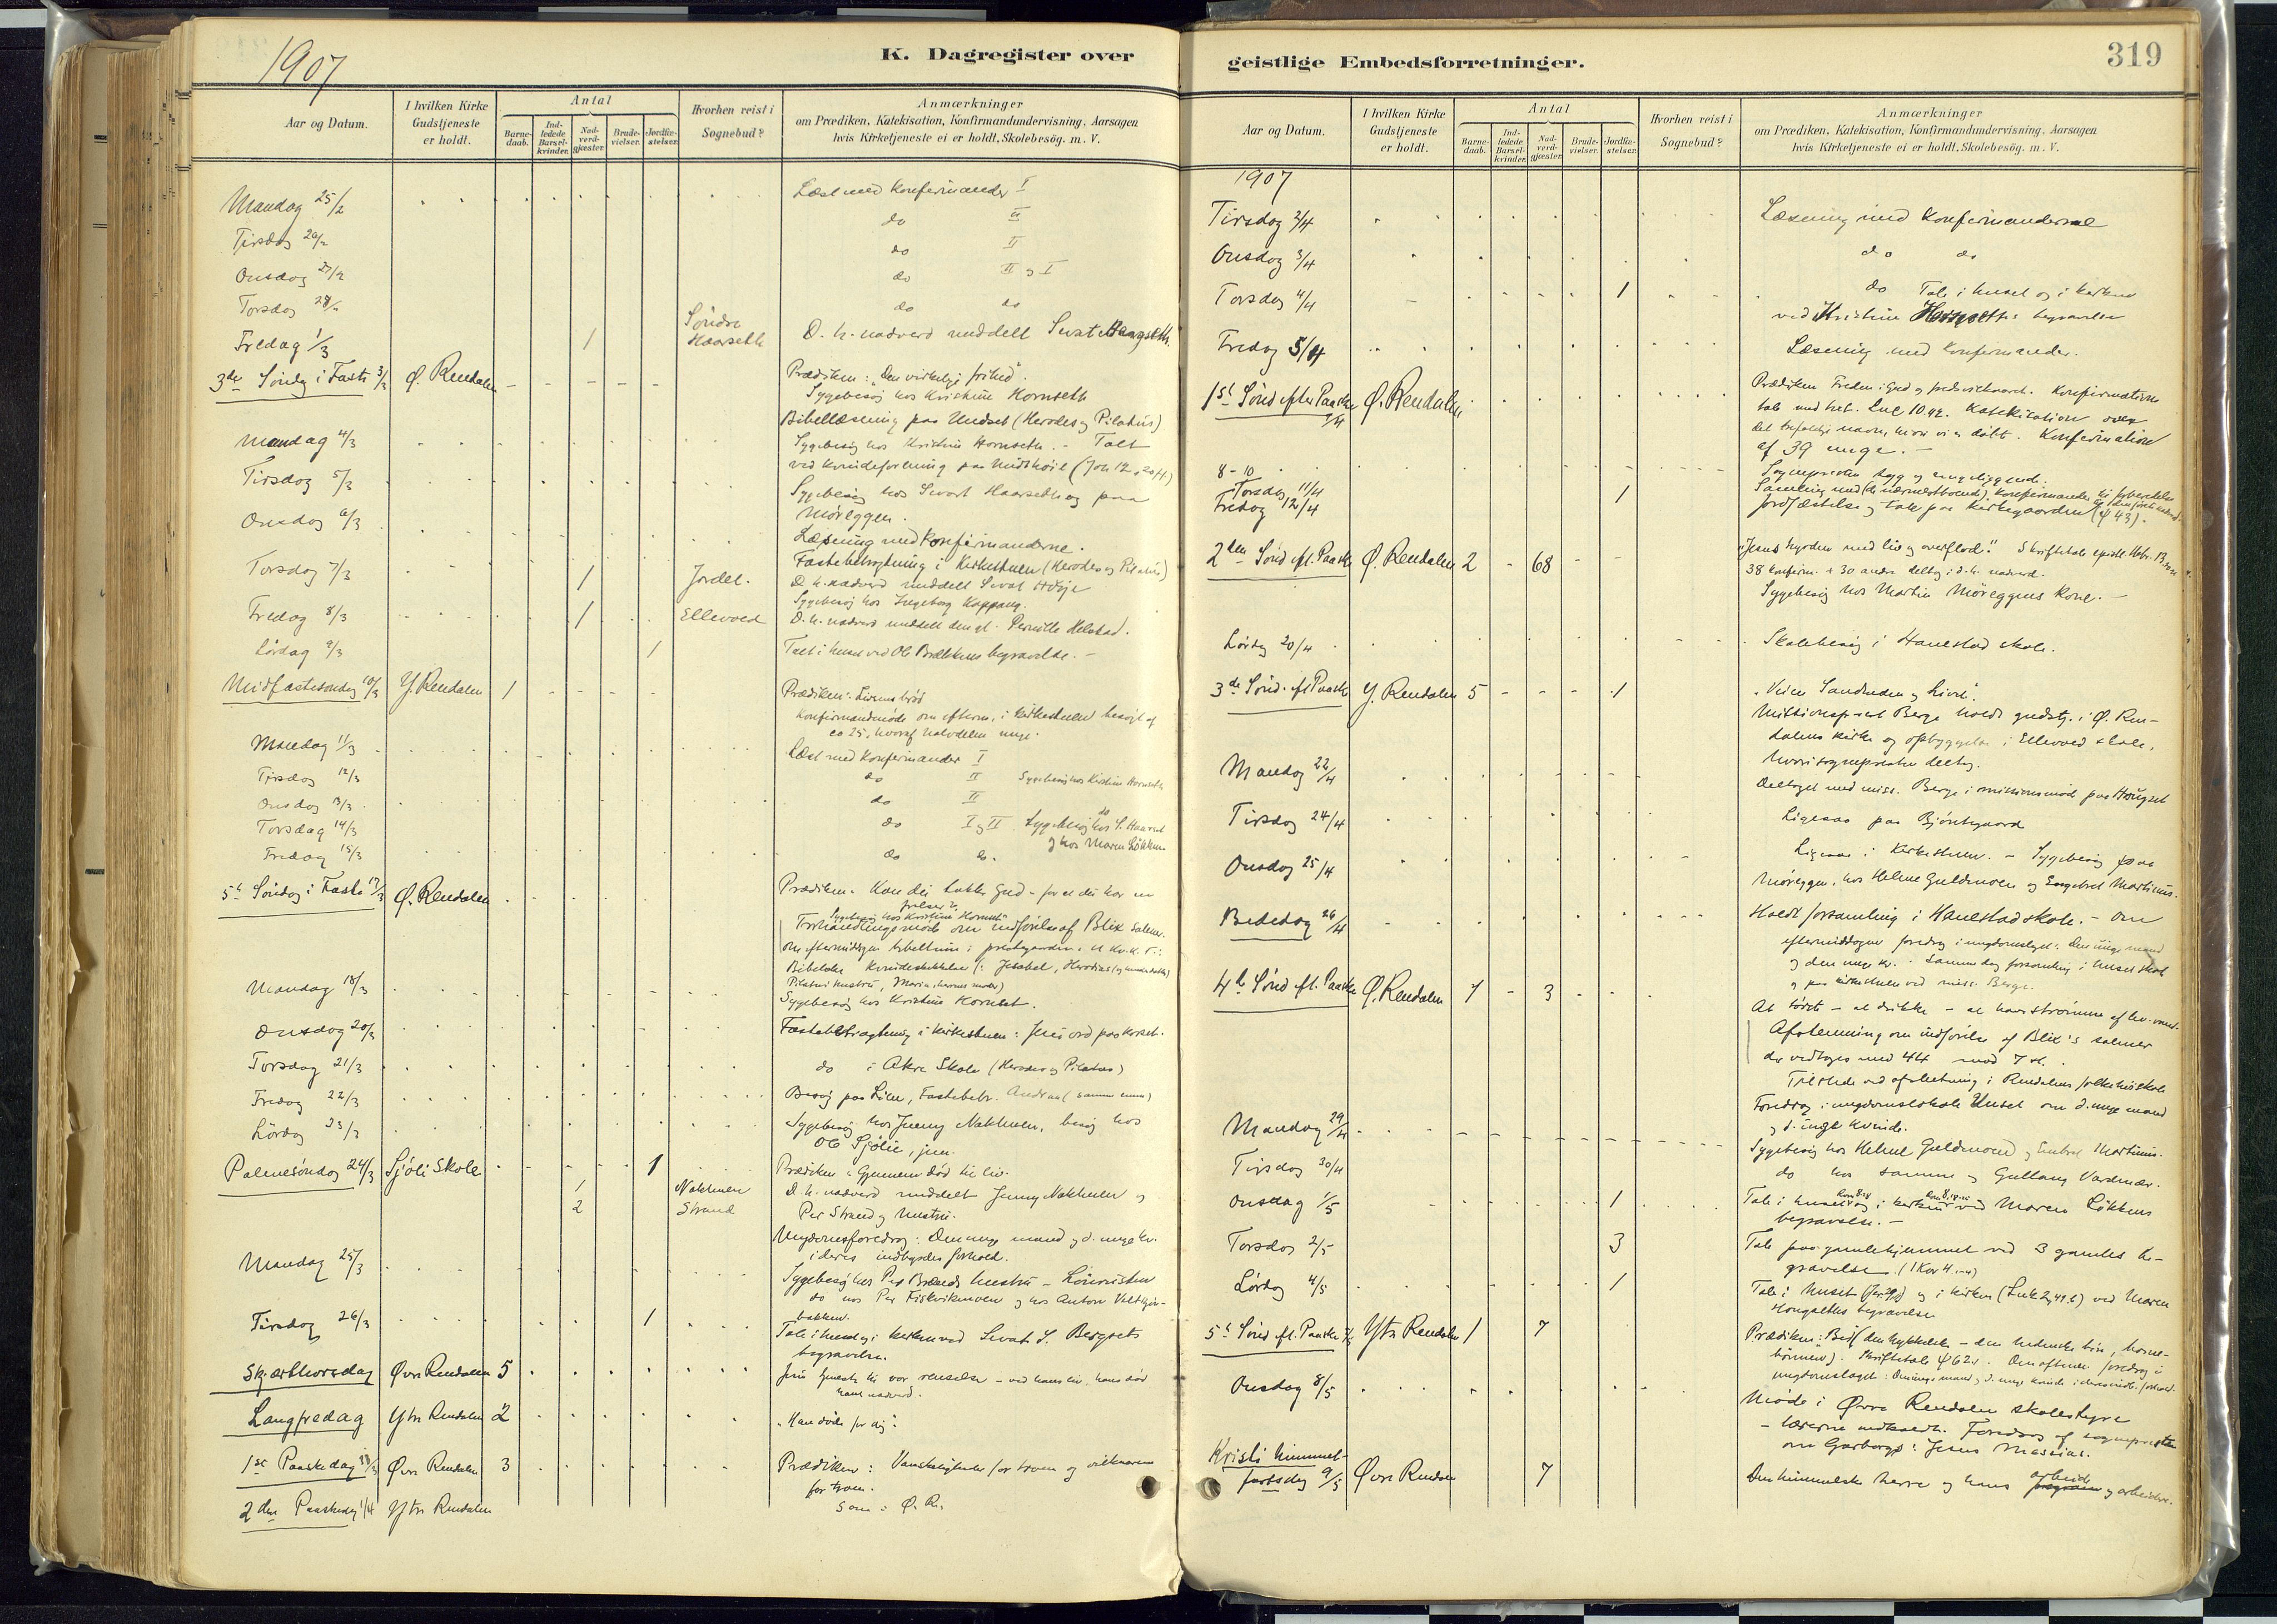 1907
K. Dagregister over
Aar og Datum.
I hvilken Kirke Gudstjeneste er holdt.
Antal
Barnedaab.
Indledede Barselkvinder.
Nadverdgjæster.
Brudevielser.
Jordfæstelser.
Hvorhen reist i Sognebud?
Anmærkninger
om Prædiken, Katekisation, Konfirmandundervisning, Aarsagen
hvis Kirketjeneste ei er holdt, Skolebesög. m. V.
Mandag 25/2 Læst med Konfirmander I
Tirsdag 26/2 do II
do II
Onsdag 27/2 do II og I
Torsdag 28/2 do do
Fredag 1/3 1 Søndre Haarseth D. h. nadverd meddelt Sevat Haarseth
3de Søndag i Faste 3/3 Ø. Rendalen Prædiken: "Den virkelige frihed".
Sygebesøg hos Kristine Hornseth
Bibellæsning paa Undset (Herodes og Pilatus)
Mandag 4/3 Sygebesøg hos Kristine Hornseth. - Talt
ved kvindeforening paa Midtskøie (Joh 12
Tirsdag 5/3 Sygebesøg hos Sevat Haarseth og paa
Møreggen.
Onsdag 6/3
Læsning med konfirmanderne.
Torsdag 7/3 1 Jordet. Fastebetragtning i Kirkestuen (Herodes og Pilatus)
D. h. nadverd meddelt Sevat
Sygebesøg hos Ingeborg Kappang.
Fredag 8/3 1 Ellevoed D. h. nadverd meddelt den gl. Pernille Helstad.
Lørdag 9/3 1 Talt i huset ved Ole Brælkkens begravelse. -
Midfastesøndag 10/3 Y. Rendalen 1 Prædiken: Livsens brød
Konfirmandmøde om efterm. i Kirkestuen besøgt af
ca 25, hvoraf halvdelen unge.
Mandag 11/3 Læst med Konfirmander I
Tirsdag 12/3 do II Sygebesøg hos Kristine Hornseth
Onsdag 13/3 do II
Torsdag 14/3 do I og II Sygebesøg hos S. Haarset
og hos Maren Løkken
Fredag 15/3 do do.
5te Søndag i Faste 17/3 Ø. Rendalen Prædiken. Kan du takke Gud - for at du har en
frelser?
Sygebesøg hos Kristine Hornseth
Forhandlingsmøde om indførelse af Blix salmer.
Bibelske kvindeskikkelser (: Jesabel, Herodias
Pilatus' hustru, Maria, Herrens moder)
Mandag 18/3 Sygebesøg hos Kristine Hornset.
Onsdag 20/3 Fastebetragtning i Kirkestuen: Jesu ord paa korset.
Torsdag 21/3 do i Akre Skole (Herodes og Pilatus)
Fredag 22/3 Besøg paa Lien, Fastebetr. Andraa (samme emne)
Lørdag 23/3 Sygebesøg hos Jenny Nakkulen, besøg hos
Ole Sjølie, jun.
Palmesøndag 24/3 Sjøli Skole 1 Prædiken: Gjennem død til liv.
1 Nakkulen D. h. nadverd meddelt Jenny Nakkulen og
2 Strand Per Strand og hustru.
Ungdomsforedrag: Den unge mand og d. unge kv.
i deres indbyrdes forhold.
Mandag 25/3 Sygebesøg hos Per Brænds hustru -
do hos Per Fiskvikmoen og hos Anton
bakken.
Tirsdag 26/3 1 Tale i huset og i kirken ved Sevat S. Bergsets
begravelse.
Skjærthorsdag Øvre Rendalen 5 Jesu tjeneste til vor renselse - ved hans liv, hans død
hans nadverd.
Langfredag Ytre Rendalen 2 "Han døde for mig".
1ste Paaskedag 31/3 Øvre Rendalen 3 Prædiken: Vanskeligheder for troen og vilkaarene
for troen.
2den Paaskedag 1/4 Ytre Rendalen Som i Ø. R.
geistlige Embedsforretninger.
319
Aar og Datum.
I hvilken Kirke Gudstjeneste er holdt.
Antal
Barnedaab.
Indledede Barselkvinder.
Nadverdgjæster.
Brudevielser.
Jordfæstelser.
Hvorhen reist i Sognebud?
Anmærkninger
om Prædiken, Katekisation, Konfirmandundervisning, Aarsagen
hvis Kirketjeneste ei er holdt, Skolebesög. m. V.
1907
Tirsdag 2/4 Læsning med Konfirmanderne
Onsdag 3/4 do do
Torsdag 4/4 1 do Tale i huset og i kirken
ved Kristine Hornseths begravelse
Fredag 5/4 Læsning med Konfirmander.
1ste Sønd efter Paaske 7/4 Ø. Rendalen Prædiken Freden i Gud og fredsvirksomh. Konfirmations
tale ud fra Luc 10.42. Katekisation over
det trefoldige navn, hvori vi er døbt. Konfirmation
af 39 unge. -
8-10 Sognepresten syg og sengeliggende.
Torsdag 11/4 Samling med (de nærmestboende) konfirmander til forberedelse
Fredag 12/4 1 Jordfæstelse og tale paa Kirkegaarden (ψ 43).
2den Sønd eft. Paaske Ø. Rendalen 2 - 68 "Jesus hyrden med liv og overflod". Skriftetale epistl Hebr. 13
38 konfirm. + 30 andre deltog i d. h. nadverd.
Sygebesøg hos Martin Møreggens kone. -
Lørdag 20/4 Skolebesøg i Hanestad skole.
3de Sønd. eft Paaske Y. Rendalen 5 1 "Veien Sandheden og Livet".
Missionsprest Berge holdt gudstj. i Ø. Ren-
dalens kirke og opbyggelse i Ellevoed skole,
hvori sognepresten deltog.
Mandag 22/4 Deltaget med miss. Berge i missionsmøde paa Haugset
Tirsdag 24/4 Ligesaa paa Bjøntegaard
Onsdag 25/4 Ligesaa i Kirkestuen. - Sygebesøg paa
Møreggen, hos Helene Guldmoen og Engebret Martinus.
Bededag 26/4 Holdt forsamling i Hanestad skole. - Om
eftermiddagen foredrag i ungdomslaget: Den unge mand
og den unge kv. - Samme dag forsamling i Unset skole
og paa kirkestuen ved miss. Berge.
4de Sønd eft. Paaske Ø. Rendalen 7 - 3 At tørste - at drikke - at have strømme af lev. vand.
Afstemning om indførelse af Blix's salmer
der vedtoges med 44 mod 7 st.
Tilstede ved afslutning i Rendalens folkehøiskole
Foredrag i ungdomslokale Unset om d. unge mand
og d. unge kvinde.
Mandag 29/4 Sygebesøg hos Helene Guldmoen og Embret Martinus.
Tirsdag 30/4 do hos samme og Gullaug Vardmær.
Onsdag 1/5 1 Tale i huset og i kirken ved Maren Løkkens
begravelse. -
Torsdag 2/5 3 Tale paa gamlehjemmet ved 3 gamles be-
gravelse. (1 Kor 4
Lørdag 4/5 1 Tale i huset og i kirken (Luk 2 ved Maren
Hougseths begravelse
5te Sønd eft. Paaske Ytre Rendalen 1 7 Prædiken: Bed (den hyklerske - den hedenske bøn, barne-
bønnen). Skriftetale ψ 62 Om efterm. foredrag i
ungdomslaget: Den unge mand og d. unge kvinde i deres indb. forhold.
Onsdag 8/5 Møde i Øvre Rendalen skolestyre
- lærerne indkaldt. Foredrag af sognepresten
om Garborgs: Jesus Messias.
Kristi himmel-
fartsdag 9/5 Øvre Rendalen 7 Den himmelske herre og hans arbeide og arbeidere.